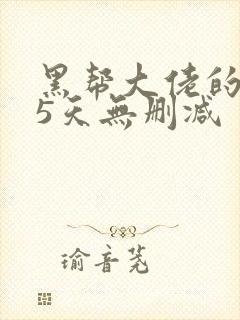 黑帮大佬的
5天無删减
瑜音茺